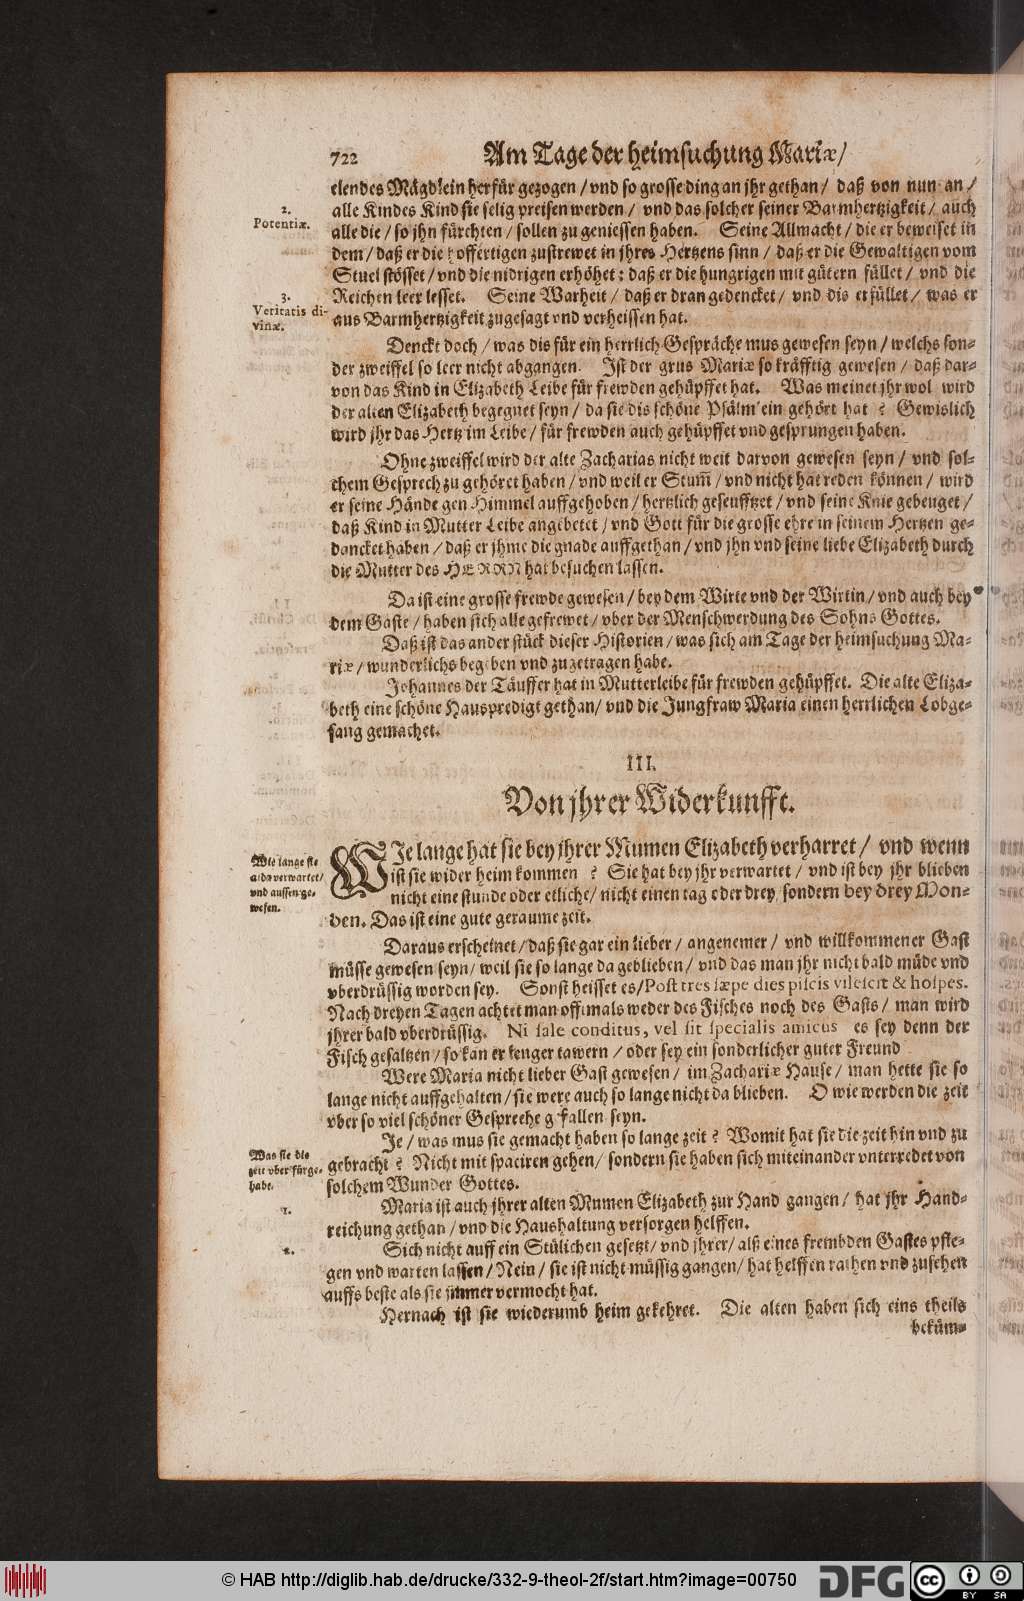 722 Am Tage der heimsuchung Mariæ/
elendes Mägdlein herfür gezogen / vnd so grosse ding an jhr gethan / daß von nun an /
alle Kindes Kind sie selig preisen werden / vnd das solcher seiner Barmhertzigkeit / auch
2.
Potentiæ.
alle die / so jhn fürchten / sollen zu geniessen haben. Seine Allmacht / die er beweiset in
dem / daß er die hoffertigen zustrewet in jhres Hertzens sinn / daß er die Gewaltigen vom
Stuel stösset / vnd die nidrigen erhöhet : daß er die hungrigen mit gütern füllet / vnd die
3.
Veritatis di-
vinæ.
Reichen leer lesset. Seine Warheit / daß er dran gedencket / vnd dis erfüllet / was er
aus Barmhertzigkeit zugesagt vnd verheissen hat.
Denckt doch / was dis für ein herrlich Gespräche mus gewesen seyn / welchs son-
der zweiffel so leer nicht abgangen. Ist der grus Mariæ so kräfftig gewesen / daß dar-
von das Kind in Elizabeth Leibe für frewden gehüpffet hat. Was meinet jhr wol wird
der alten Elizabeth begegnet seyn / da sie dis schöne Psälmlein gehört hat ? Gewislich
wird jhr das Hertz im Leibe / für frewden auch gehüpffet vnd gesprungen haben.
Ohne zweiffel wird der alte Zacharias nicht weit darvon gewesen seyn / vnd sol-
chem Gesprech zu gehöret haben / vnd weil er Stum̃ / vnd nicht hat reden können / wird
er seine Hände gen Himmel auffgehoben / hertzlich geseufftzet / vnd seine Knie gebeuget /
daß Kind in Mutter Leibe angebetet / vnd Gott für die grosse ehre in seinem Hertzen ge-
dancket haben / daß er jhme die gnade auffgethan / vnd jhn vnd seine liebe Elizabeth durch
die Mutter des HERRN hat besuchen lassen.
Da ist eine grosse frewde gewesen / bey dem Wirte vnd der Wirtin / vnd auch bey
dem Gaste / haben sich alle gefrewet / vber der Menschwerdung des Sohns Gottes.
Daß ist das ander stück dieser Historien / was sich am Tage der heimsuchung Ma-
riæ / wunderlichs begeben vnd zugetragen habe.
Johannes der Täuffer hat in Mutterleibe für frewden gehüpffet. Die alte Eliza-
beth eine schöne Hauspredigt gethan/ vnd die Jungfraw Maria einen herrlichen Lobge-
sang gemachet.
III.
Von jhrer Widerkunfft.
Wie lange sie
alda verwartet/
vnd aussen ge-
wesen.
WJe lange hat sie bey jhrer Mumen Elizabeth verharret / vnd wenn
ist sie wider heim kommen ? Sie hat bey jhr verwartet / vnd ist bey jhr blieben
nicht eine stunde oder etliche/ nicht einen tag oder drey, sondern bey drey Mon-
den. Das ist eine gute geraume zeit.
Daraus erscheinet / daß sie gar ein lieber / angenemer / vnd willkommener Gast
müsse gewesen seyn/ weil sie so lange da geblieben / vnd das man jhr nicht bald müde vnd
vberdrüssig worden sey. Sonst heisset es/ Post tres sæpe dies piscis vilescit & hospes.
Nach dreyen Tagen achtet man offtmals weder des Fisches noch des Gasts / man wird
jhrer bald vberdrüssig. Ni sale conditus, vel sit specialis amicus es sey denn der
Fisch gesaltzen / so kan er lenger tawern / oder sey ein sonderlicher guter Freund
Were Maria nicht lieber Gast gewesen / im Zachariæ Hause / man hette sie so
lange nicht auffgehalten / sie were auch so lange nicht da blieben. O wie werden die zeit
vber so viel schöner Gespreche gefallen seyn.
Was sie die
zeit vber fürge-
habt.
Je / was mus sie gemacht haben so lange zeit ? Womit hat sie die zeit hin vnd zu
gebracht ? Nicht mit spaciren gehen/ sondern sie haben sich miteinander vnterredet von
solchem Wunder Gottes.
1.
Maria ist auch jhrer alten Mumen Elizabeth zur Hand gangen / hat jhr Hand-
reichung gethan / vnd die Haushaltung versorgen helffen.
2.
Sich nicht auff ein Stülichen gesetzt/ vnd jhrer/ alß eines frembden Gastes pfle-
gen vnd warten lassen / Nein / sie ist nicht müssig gangen/ hat helffen rathen vnd zusehen
auffs beste als sie jmmer vermocht hat.
Hernach ist sie wiederumb heim gekehret. Die alten haben sich eins theils
beküm-
© HAB http://diglib.hab.de/drucke/332-9-theol-2f/start.htm?image=00750
DFG
cc
BY SA